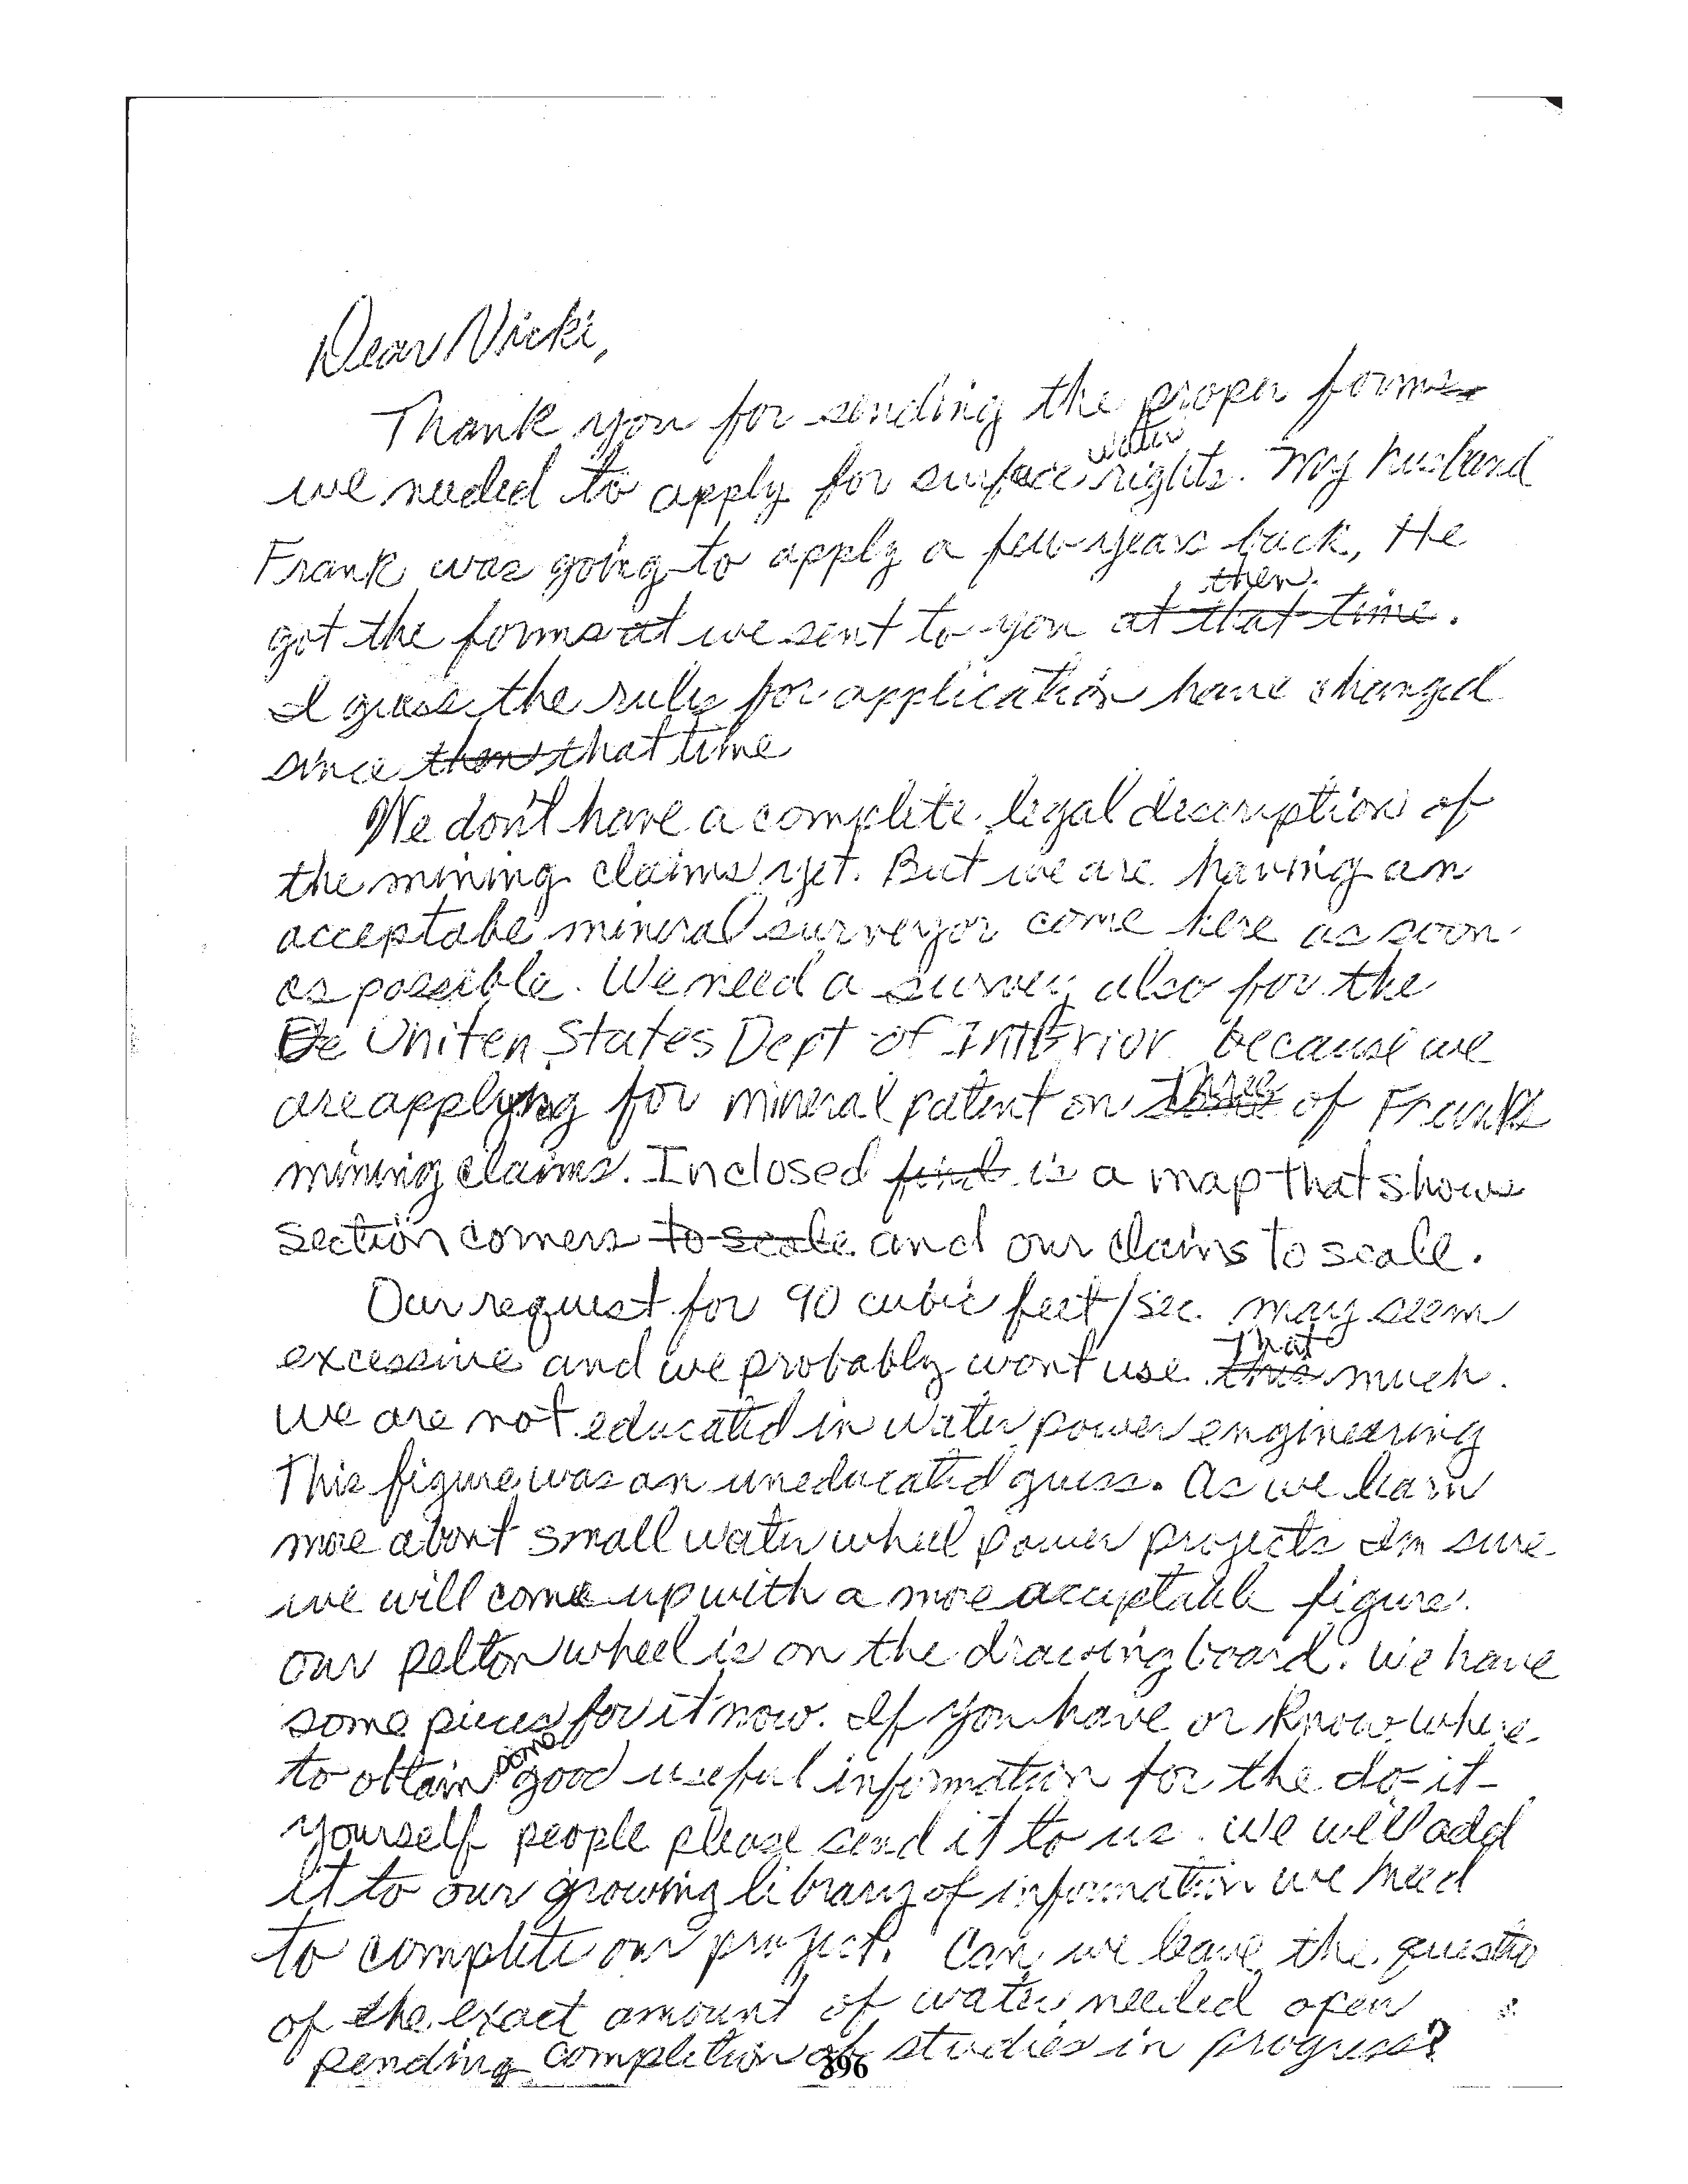 Dear Vicki,
Thank you for sending the proper forms
we needed to apply for surface water rights. My husband
Frank was going to apply a few years back, He
got the forms at we sent to you at that time then.
I guess the rules for application have changed
since then that time
We don't have a complete legal description of
the mining claims yet. But we are having an
acceptabe mineral surveyor come here as soon
as possible. We need a survey also for the
De Uniten States Dept of Interior because we
are applying for mineral patent on some three of Franks
mining claims. Inclosed find is a map that shows
section corners to scale and our claims to scale.
Our request for 90 cubic feet/sec. may seem
excessive and we probably wont use this That much.
we are not educated in water power engineering
This figure was an uneducated guess. As we learn
more about small water wheel power projects Im sure
we will come up with a more acceptable figure.
our pelton wheel is on the drawing board. We have
some pieces for it now. If you have or know where
to obtain some good useful information for the do-it-
yourself people please send it to us. We will add
it to our growing library of information we need
to complete our project. Can we leave the questio
of the exact amount of water needed open
pending completion of studies in progress?
896